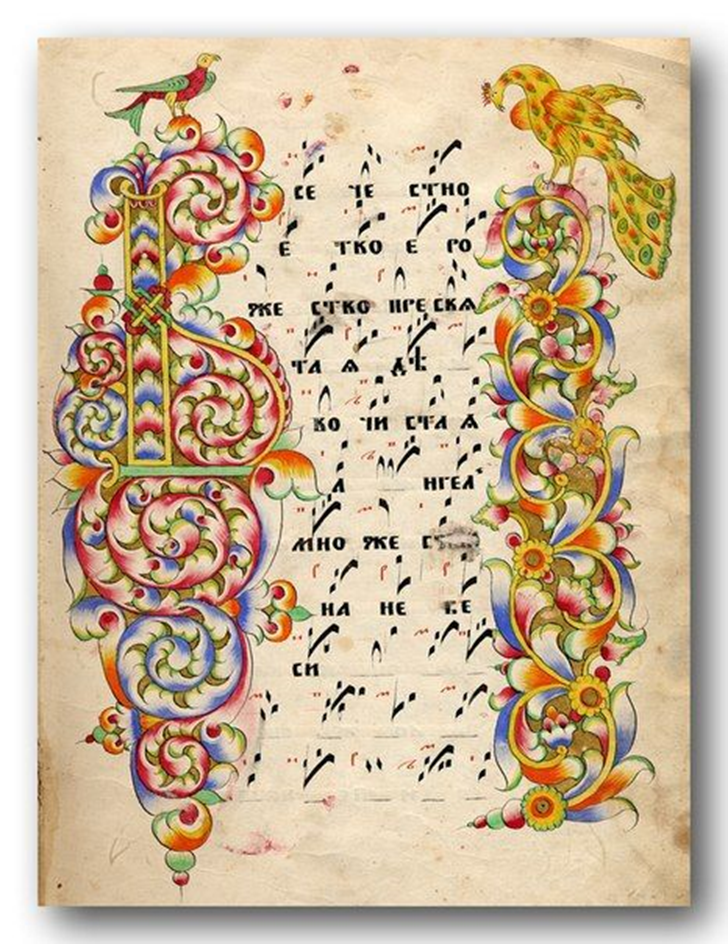 В СЕ ЧЕ СТНО
Е ТВО Е РО
ЖЕ СТВО ПРЕ СВѦ
ТА Ѧ ДѢ
ВО ЧИ СТА Ѧ
А НГЕЛ
МНО ЖЕ
НА НЕ БЕ
СИ